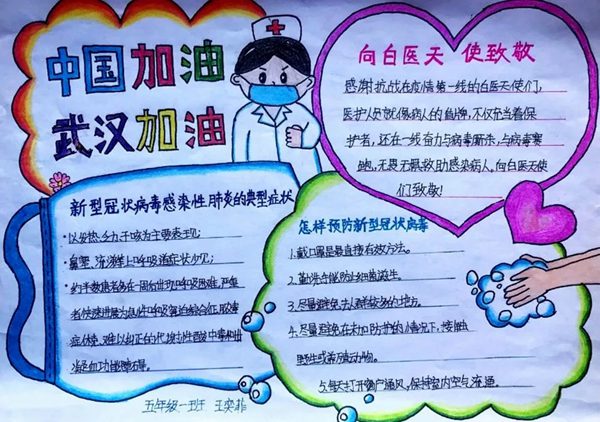 中国加油
武汉加油
向白医天使致敬
感谢抗战在疫情第一线的白医天使们,
医护人员就像病人的盾牌,不仅充当着保
护者,还在一线奋力与病毒厮杀,与病毒赛
跑,无畏无惧救助感染病人,向白医天使
们致敬!
新型冠状病毒感染性肺炎的典型症状
·以发热、乏力、干咳为主要表现;
·鼻塞、流涕等上呼吸道症状少见;
·约半数患者多在一周后出现呼吸困难,严重
者快速进展为急性呼吸窘迫综合征,脓毒
症休克,难以纠正的代谢性酸中毒和出
凝血功能障碍。
怎样预防新型冠状病毒
1.戴口罩是最直接有效方法。
2.勤洗手保防止细菌滋生。
3.尽量避免去人群较多的地方。
4.尽量避免在未加防护的情况下,接触
野生或养殖动物。
5.每天打开窗户通风,保持室内空气流通。
五年级一班 王奕菲